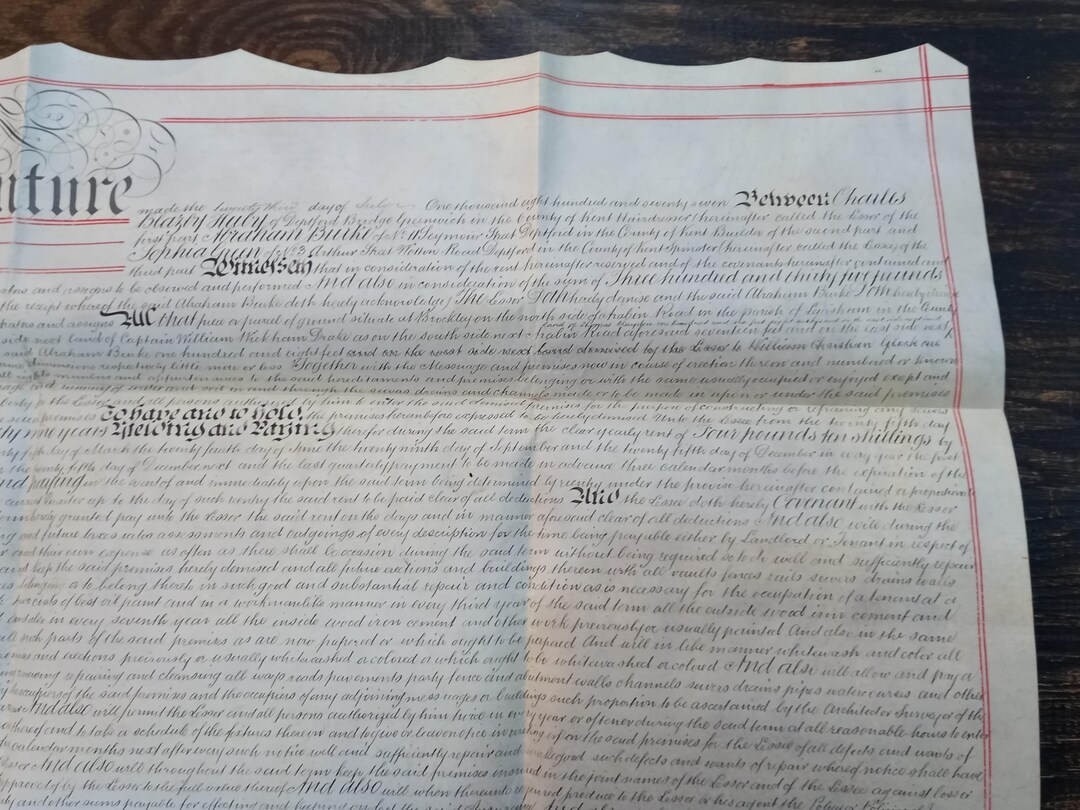 nture
made the twenty third day of July One thousand eight hundred and seventy seven Between Charles
Blazby Huby of Deptford Bridge Greenwich in the County of Kent Hairdresser (hereinafter called the Lessor of the
first part Abraham Burke of No 11 Seymour Street Deptford in the County of Kent Builder of the second part and
Sophia Arthur Street Road Deptford in the County of Kent Spinster (hereinafter called the Lessee of the
third part Witnesseth that in consideration of the rent hereinafter reserved and of the covenants hereinafter contained and
and assigns to be observed and performed And also in consideration of the sum of Three hundred and thirty five pounds
the receipt whereof the said Abraham Burke doth hereby acknowledge) The Lessor Doth hereby demise and the said Abraham Burke Doth hereby
and assigns All that piece or parcel of ground situate at Brockley on the north side of Road in the parish of Lewisham in the County
side next land of Captain William Wickham Drake as on the south side next Road aforesaid seventeen feet and on the east side next
said Abraham Burke one hundred and eight feet and on the west side next land demised by the Lessor to William Christian
dimensions respectively little more or less Together with the Messuage and premises now in course of erection thereon and numbered or known
and appurtenances to the said hereditaments and premises belonging or with the same usually occupied or enjoyed except and
and running of water and soil in and through the sewers drains and channels made or to be made in upon or under the said premises
to the Lessor and all persons authorized by him to enter the said demised premises for the purpose of constructing or repairing any sewers
premises To have and to hold the premises hereinbefore expressed to be hereby demised Unto the Lessee from the twenty fifth day
nine years Yielding and Paying therefor during the said term the clear yearly rent of Four pounds ten shillings by
fifth day of March the twenty fourth day of June the twenty ninth day of September and the twenty fifth day of December in every year the first
twenty fifth day of December next and the last quarterly payment to be made in advance three calendar months before the expiration of the
And paying in the event of and immediately upon the said term being determined by reentry under the proviso hereinafter contained a proportionate
up to the day of such reentry the said rent to be paid clear of all deductions And the Lessee doth hereby Covenant with the Lessor
hereby granted pay unto the Lessor the said rent on the days and in manner aforesaid clear of all deductions And also will during the
and future taxes rates assessments and outgoings of every description for the time being payable either by Landlord or Tenant in respect of
and their own expense as often as there shall be occasion during the said term without being required so to do well and sufficiently repair
and keep the said premises hereby demised and all future erections and buildings thereon with all vaults fences rails sewers drains walls
belonging or to belong thereto in such good and substantial repair and condition as is necessary for the occupation of a tenant at a
coats of best oil paint and in a workmanlike manner in every third year of the said term all the outside wood iron cement and
in every seventh year all the inside wood iron cement and other work previously or usually painted And also in the same
all such parts of the said premises as are now papered or which ought to be papered And will in like manner whitewash and color all
and erections previously or usually whitewashed or colored or which ought to be whitewashed or colored And also will allow and pay a
repairing and cleansing all ways roads pavements party fence and abutment walls channels sewers drains pipes watercourses and other
occupiers of the said premises and the occupiers of any adjoining messuages or buildings such proportion to be ascertained by the Architect or Surveyor of the
And also will permit the Lessor and all persons authorized by him twice in every year or oftener during the said term at all reasonable hours to enter
thereof and to take a schedule of the fixtures thereon and to give or leave notice in writing on the said premises for the Lessee of all defects and wants of
calendar months next after every such notice will and sufficiently repair and make good such defects and wants of repair whereof notice shall have
And also will throughout the said term keep the said premises insured in the joint names of the Lessor and of the Lessee against loss or
by the Lessor to the full value thereof And also will when thereunto required produce to the Lessor or his agent the
and other sums payable for effecting and keeping on foot the said